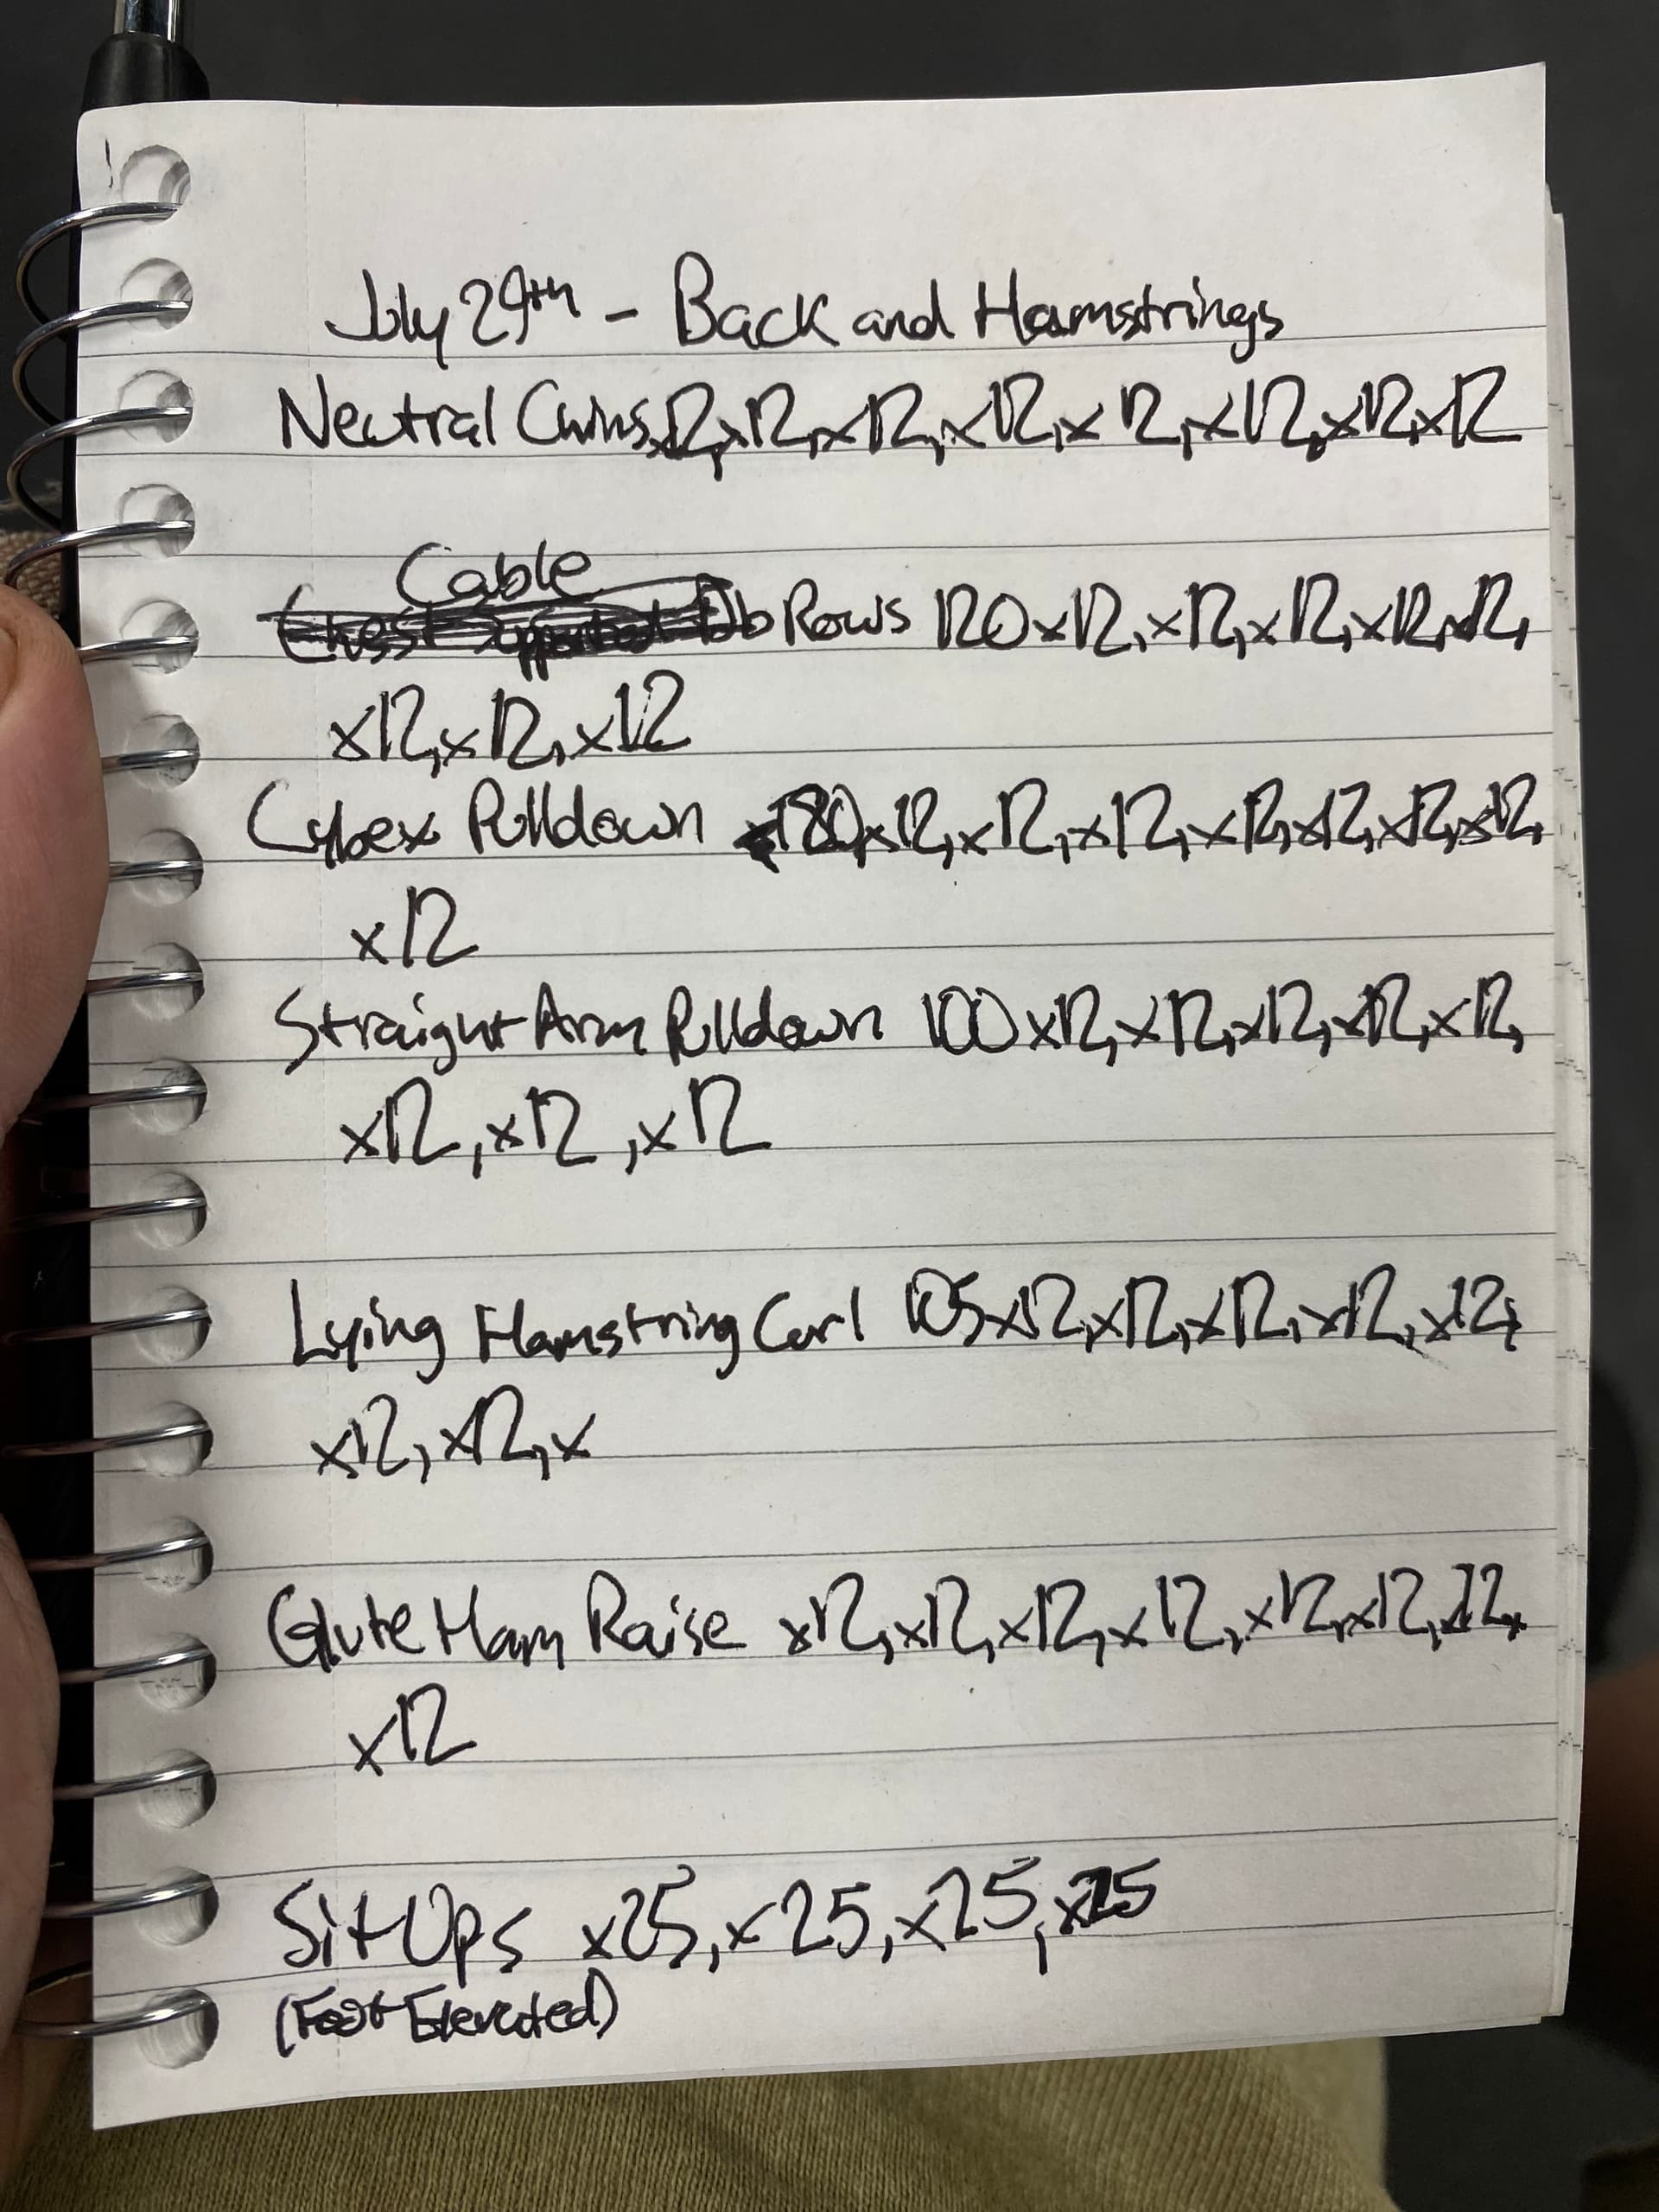 July 29th - Back and Hamstrings
Neutral Chins x12, x12, x12, x12, x12, x12, x12, x12
Cable
Chest Supported Db Rows 120x12, x12, x12, x12, x12,
x12, x12, x12
Cybex Pulldown 180x12, x12, x12, x12, x12, x12, x12,
x12
Straight Arm Pulldown 100x12, x12, x12, x12, x12,
x12, x12, x12
Lying Hamstring Curl 105x12, x12, x12, x12, x12,
x12, x12, x
Glute Ham Raise x12, x12, x12, x12, x12, x12, x12,
x12
Sit Ups x25, x25, x25, x25
(Foot Elevated)